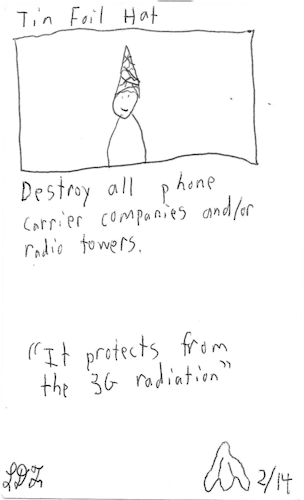 Tin Foil Hat
Destroy all phone
carrier companies and/or
radio towers.
"It protects from
the 3G radiation"
2/14